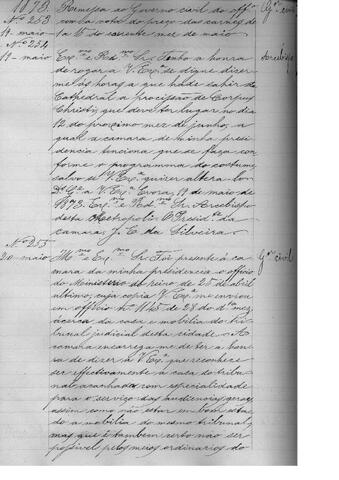 1873. Remessa ao Governo civil do off
Nº 253 com a nota do preço das carnes de
19-maio la 15 do corrente mez de maio
Nº 254
19-maio Exmº e Rdmº Sr. Tenho a honra Arcebispo
de rogar a V. Exª se digne dizer-
me ás horas a que hade sahir da
Cathedral a procissão de Corpus
Christi, que deve ter lugar no dia
12 do proximo mez de junho, a
qual a camara de minha presi
dencia tenciona que se faça con
forme o programma do costume,
salvo se V. Exª quizer altera-lo
Ds Ge a V. Exª Evora, 19 de maio de
1873. Exmº e Rdmº Sr. Arcebispo
desta Metropoli. O Presidte da
camara, J. C. da Silveira
Nº 255
20-maio Illmo Exmo Sr. Foi presente á ca Gor civil
mara da minha presidencia o officio
do Ministerio do reino de 25 de abril
ultimo, cuja copia V. Exª me enviou
em officio nº 145 de 28 do dº mez,
ácerca da casa e mobilia do tri
bunal judicial desta cidade. A
camara encarrega-me de ter a hon
ra de dizer a V. Exª que reconhece
ser effectivamente a casa do tribu
nal acanhada com especialidade
para o serviço das audiencias geraes
assim como não estar em bom esta
do a mobilia do mesmo tribunal,
mas que é tambem certo não ser
possivel pelos meios ordinarios do